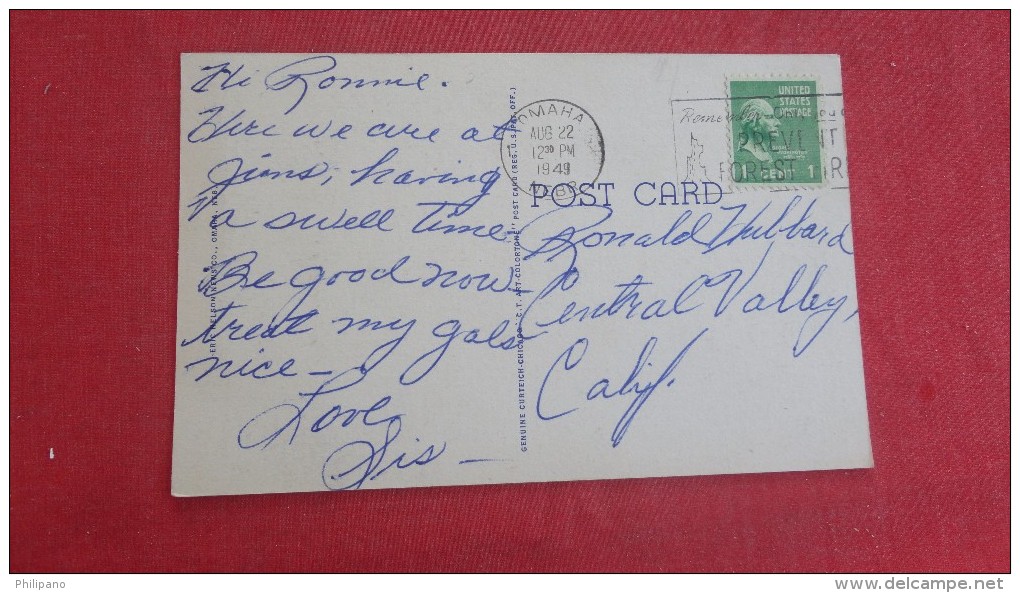 Hi Ronnie.
Here we are at
Jims, having
a swell time.
Be good now –
treat my gals
nice –
Love
Sis –
ERIC NELSON NEWS CO., OMAHA, NEB.
GENUINE CURTEICH-CHICAGO "C. T. ART-COLORTONE" POST CARD (REG. U. S. PAT. OFF.)
OMAHA
AUG 22
12 30 PM
1949
NEBR
Remember
PREVENT
FOREST FIRE
UNITED
STATES
POSTAGE
1 CENT 1
POST CARD
Ronald Hubbard
Central Valley,
Calif.
Philipano
www.delcampe.net